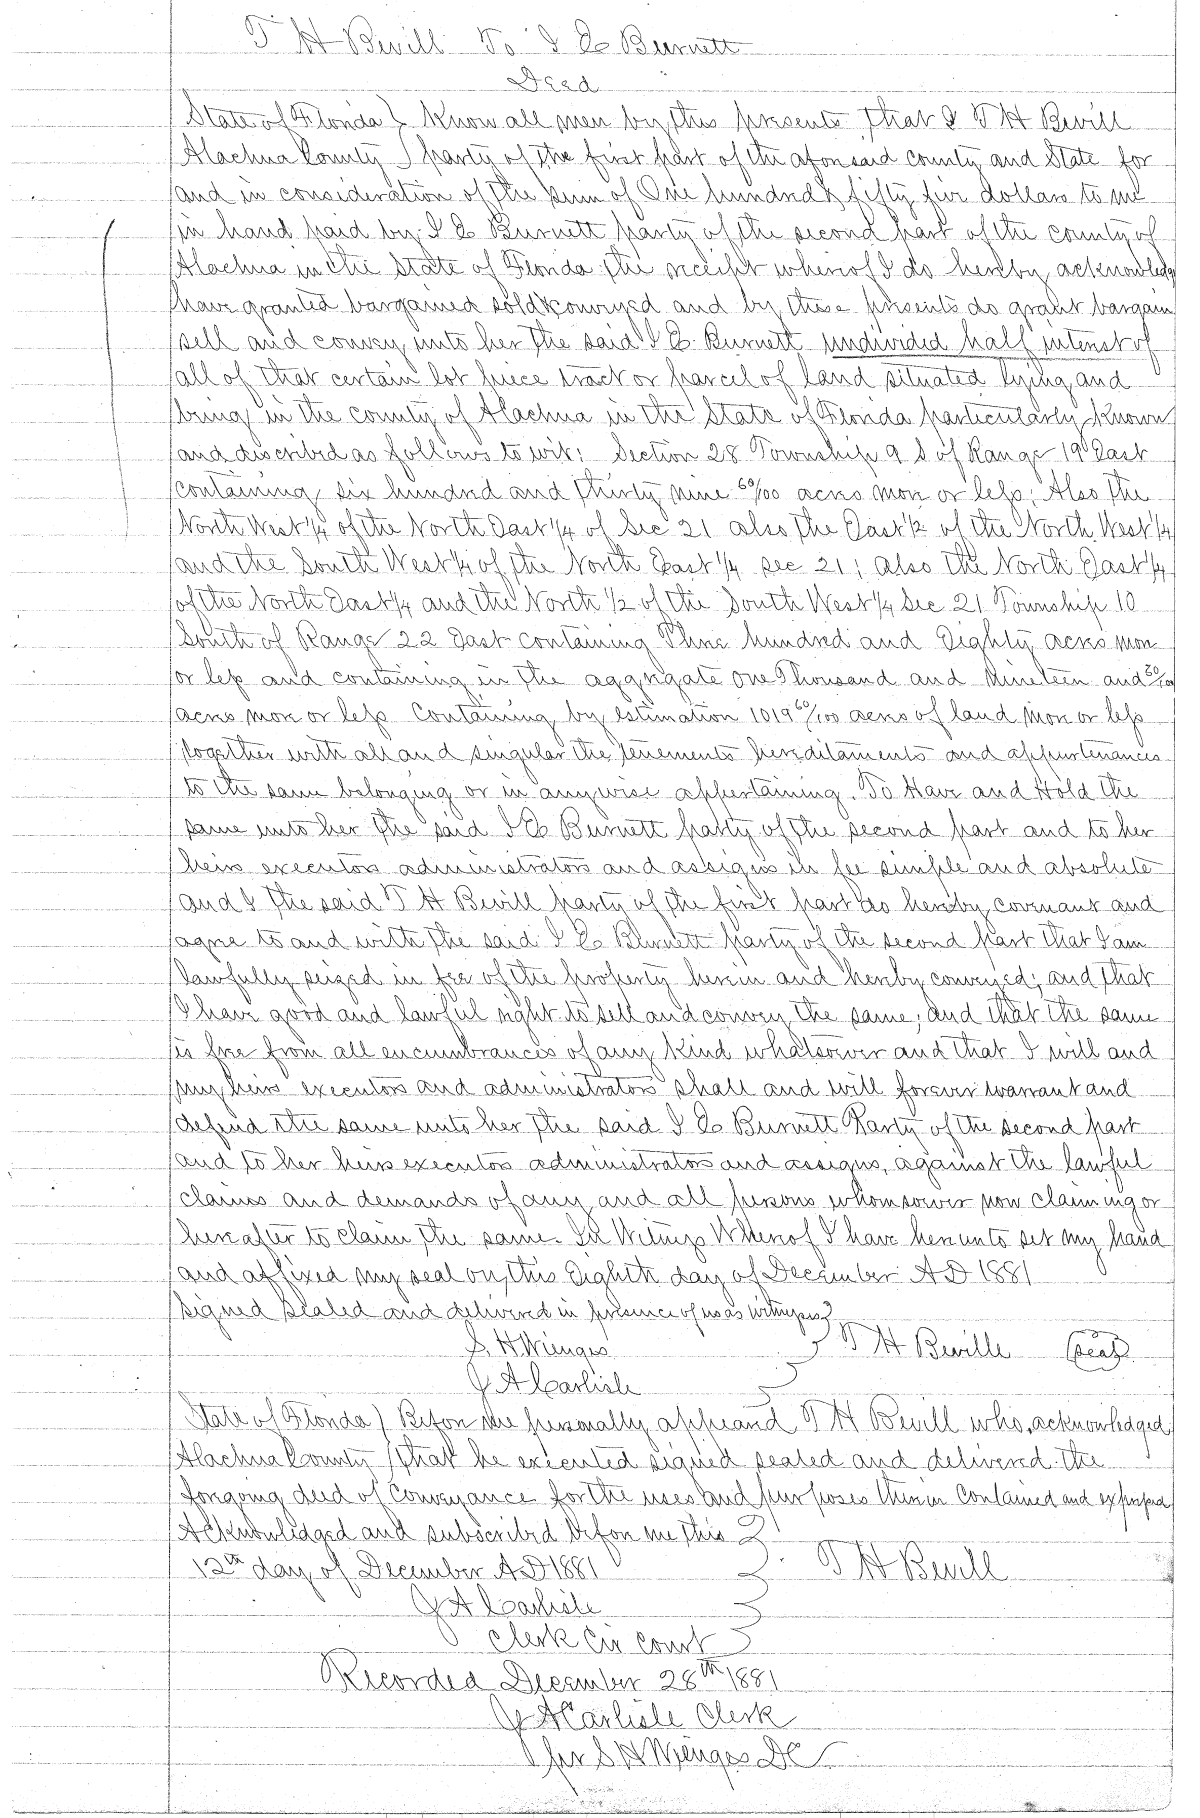 T H Bevill To I E Burnett
Deed
State of Florida } Know all men by this presents that I T H Bevill
Alachua County } party of the first part of the aforesaid county and State for
and in consideration of the sum of One hundred & fifty five dollars to me
in hand paid by I E Burnett party of the second part of the county of
Alachua in the State of Florida the receipt whereof I do hereby acknowledge
have granted bargained sold & conveyed and by these presents do grant bargain
sell and convey unto her the said I E Burnett undivided half interest of
all of that certain lot piece tract or parcel of land situated lying and
being in the county of Alachua in the State of Florida particularly known
and discribed as follows to wit: Section 28 Township 9 S of Range 19 East
containing six hundred and thirty nine 60/100 acres more or less; Also the
North West 1/4 of the North East 1/4 of Sec 21 also the East 1/2 of the North West 1/4
and the South West 1/4 of the North East 1/4 sec 21; also the North East 1/4
of the North East 1/4 and the North 1/2 of the South West 1/4 Sec 21 Township 10
South of Range 22 East containing Three hundred and Eighty acres more
or less and containing in the aggregate one Thousand and Nineteen and 60/100
acres more or less Containing by estimation 1019 60/100 acres of land more or less
together with all and singular the tenements hereditaments and appurtenances
to the same belonging or in anywise appertaining. To Have and Hold the
same unto her the said I E Burnett party of the second part and to her
heirs executors administrators and assigns in fee simple and absolute
and I the said T H Bevill party of the first part do hereby covenant and
agree to and with the said I E Burnett party of the second part that I am
lawfully seized in fee of the property herein and hereby conveyed; and that
I have good and lawful right to sell and convey the same; and that the same
is free from all encumbrances of any kind whatsoever and that I will and
my heirs executors and administrators shall and will forever warrant and
defend the same unto her the said I E Burnett Party of the second part
and to her heirs executors administrators and assigns, against the lawful
claims and demands of any and all persons whomsoever now claiming or
hereafter to claim the same. In Witness Whereof I have hereunto set my hand
and affixed my seal on this Eighth day of December A D 1881
signed sealed and delivered in presence of us as witnesses }
S. H Wienges } T H Beville (seal)
J A Carlisle }
State of Florida } Before me personally appeared T H Bevill who acknowledged
Alachua County } that he executed signed sealed and delivered the
forgoing deed of Conveyance for the uses and purposes therein contained and expressed
Acknowledged and subscribed before me this }
12th day of December A D 1881 } T H Bevill
J A Carlisle
Clerk Cir Court }
Recorded December 28th 1881
J A Carlisle Clerk
per S H Wienges DC